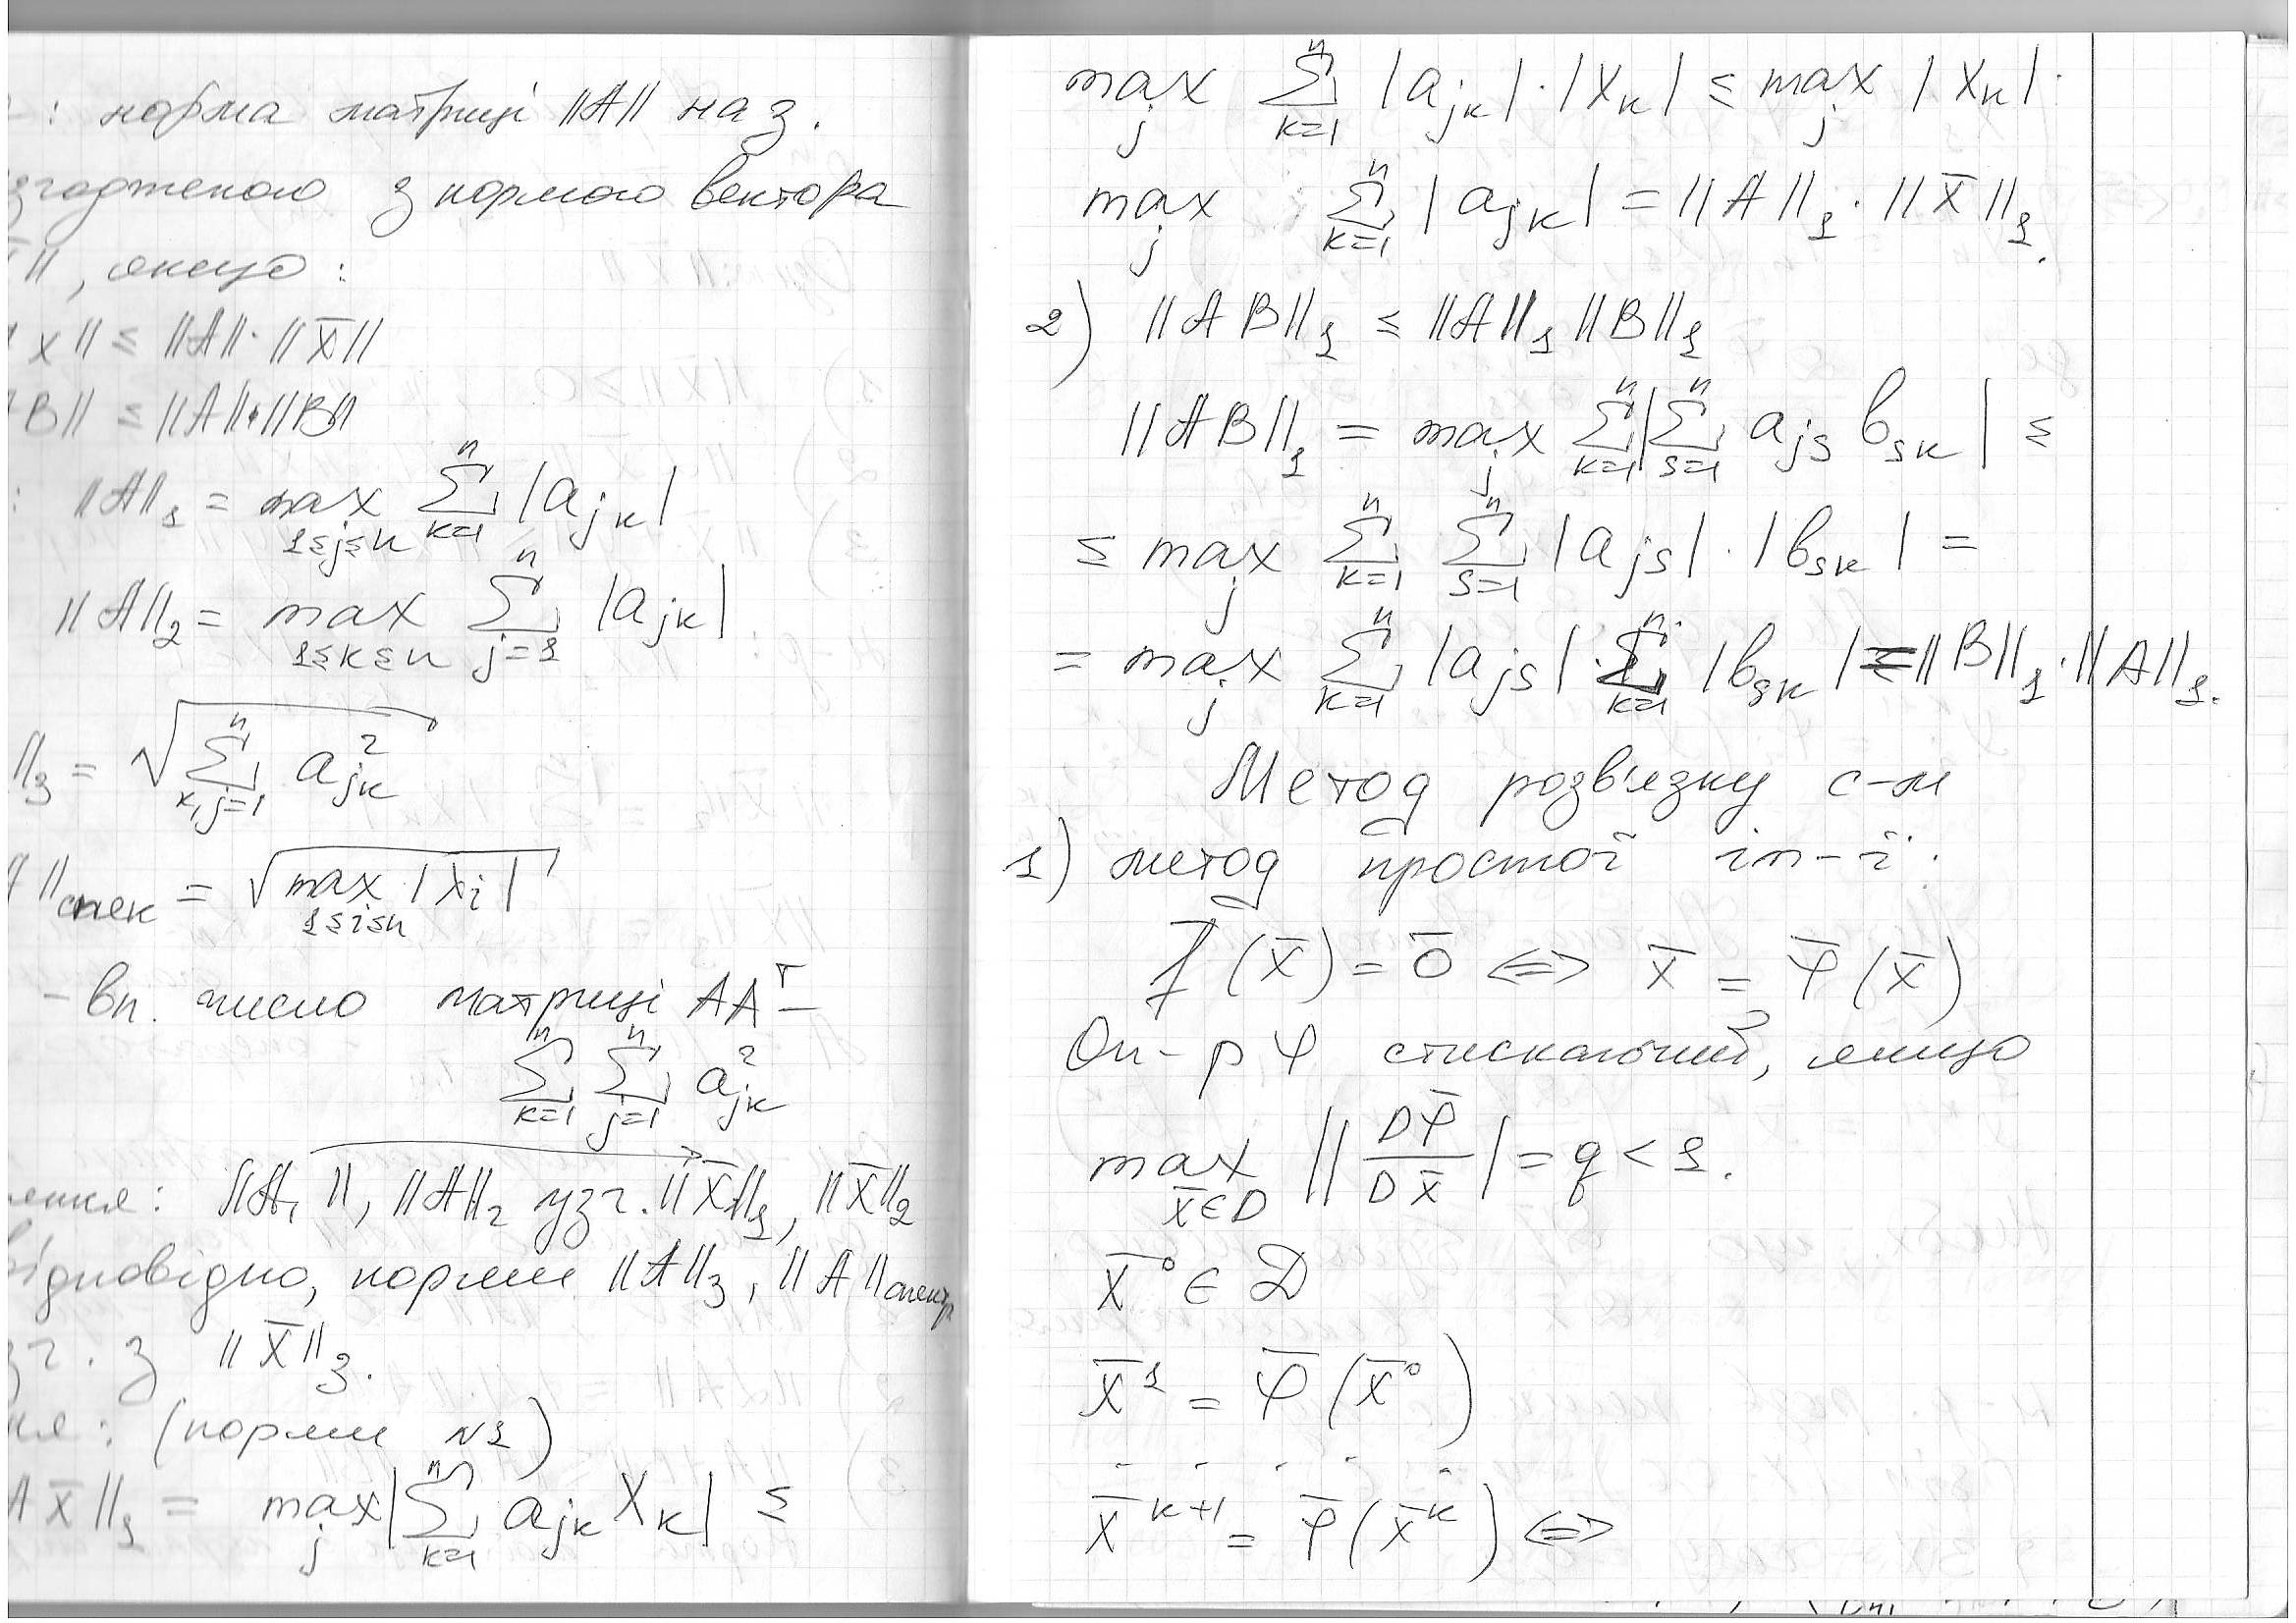 : норма матриці ||A|| наз.
згодженою з нормою вектора
||, якщо:
x|| ≤ ||A||·||x̄||
B|| ≤ ||A||·||B||
: ||A||₁ = max 1≤j≤n ∑ k=1 n |a_jk|
||A||₂ = max 1≤k≤n ∑ j=1 n |a_jk|
||₃ = √(∑ k,j=1 n a²_jk)
||спек = √(max 1≤i≤n |λi|)
- вл. число матриці AAᵀ –
∑ k=1 n ∑ j=1 n a²_jk
ення: ||A₁||, ||A||₂ узг. ||x̄||₁, ||x̄||₂
відповідно, норми ||A||₃, ||A||спектр
зг. з ||x̄||₃.
ня: (норми №1)
Ax̄||₁ = max j |∑ k=1 n a_jk x_k| ≤
max j ∑ k=1 n |a_jk|·|x_k| ≤ max j |x_k|·
max j ∑ k=1 n |a_jk| = ||A||₁·||x̄||₁.
2) ||AB||₁ ≤ ||A||₁ ||B||₁
||AB||₁ = max j ∑ k=1 n |∑ s=1 n a_js b_sk| ≤
≤ max j ∑ k=1 n ∑ s=1 n |a_js|·|b_sk| =
= max j ∑ k=1 n |a_js|·∑ k=1 n |b_sk| = ||B||₁·||A||₁.
Метод розвязку с-м
1) метод простої іт-ї:
f̄(x̄) = 0̄ <=> x̄ = φ̄(x̄)
Оп-р φ стискаючий, якщо
max x̄∈D ||Dφ̄/Dx̄| = q < 1.
x̄⁰ ∈ D
x̄¹ = φ̄(x̄⁰)
. . . . .
x̄ᵏ⁺¹ = φ̄(x̄ᵏ) <=>